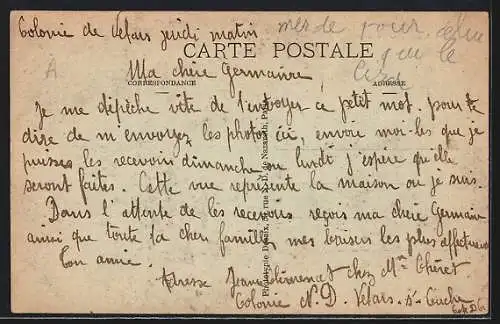 Colonie de Velars jeudi matin
merde pour celui
qui le
lira
CARTE POSTALE
A
Ma chère Germaine
CORRESPONDANCE
ADRESSE
Je me dépêche vite de t'envoyer ce petit mot, pour te
dire de m'envoyez les photos ici, envoie moi-les que je
puisses les recevoir dimanche ou lundi j'espère qu'elle
seront faites. Cette vue représente la maison ou je suis.
Dans l'attente de les recevoirs reçois ma chère Germaine
ainsi que toute ta chère famille, mes baisers les plus affectueux
Ton amie.
Adresse Jeanne chez Mme
Colonie N. D. Velars-s-Ouche
Côte D'Or
Phototypie Desaix, rue N.-D. de Nazareth, Paris